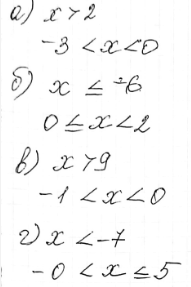 а) x > 2
-3 < x < 0
б) x ≤ -6
0 ≤ x < 2
в) x > 9
-1 < x < 0
г) x < -7
-0 < x ≤ 5